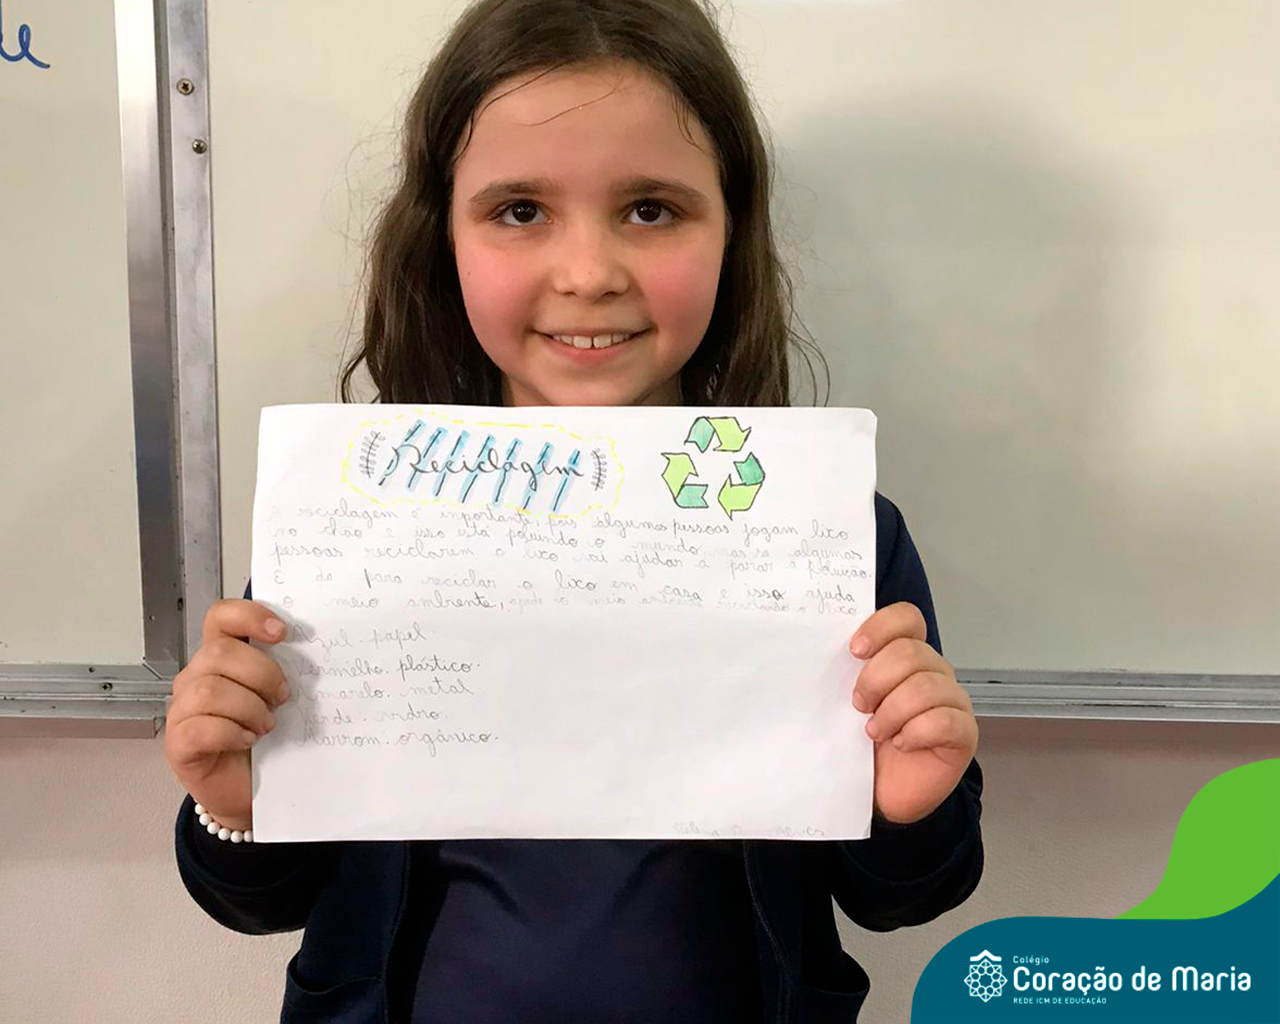 Reciclagem
A reciclagem é importante, pois algumas pessoas jogam lixo
no chão e isso está poluindo o mundo, mas se algumas
pessoas reciclarem o lixo vai ajudar a parar a poluição.
E da para reciclar o lixo em casa e isso ajuda
o meio ambiente, ajude o meio ambiente reciclando o lixo
Azul - papel.
Vermelho - plástico.
Amarelo - metal
Verde - vidro.
Marrom - orgânico.
Colégio
Coração de Maria
REDE ICM DE EDUCAÇÃO